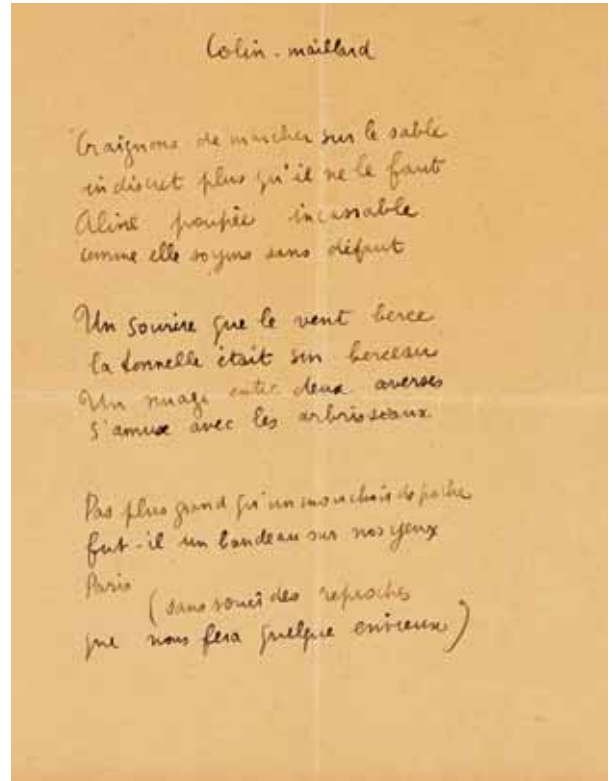 Colin-maillard
Craignons de marcher sur le sable
indiscret plus qu'il ne le faut
Aline poupée incassable
comme elle soyons sans défaut
Un sourire que le vent berce
la tonnelle était son berceau
Un nuage entre deux averses
s'amuse avec les arbrisseaux
Pas plus grand qu'un mouchoir de poche
fut-il un bandeau sur nos yeux
Paris
(sans souci des reproches
que nous fera quelque envieux)